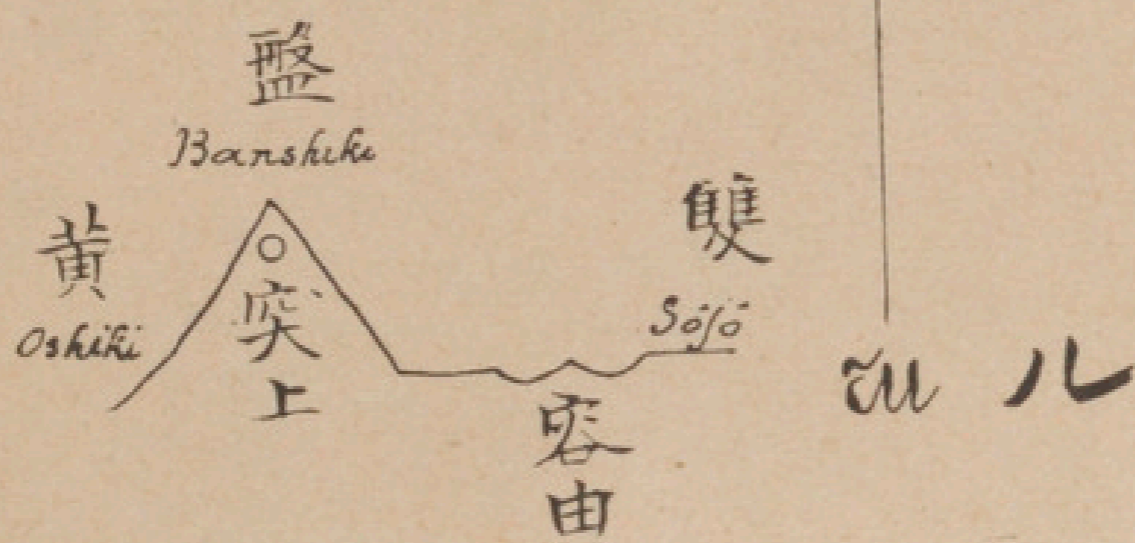 盤
Banshiki
黄
Oshiki
突
上
雙
Sójó
容
由
ル